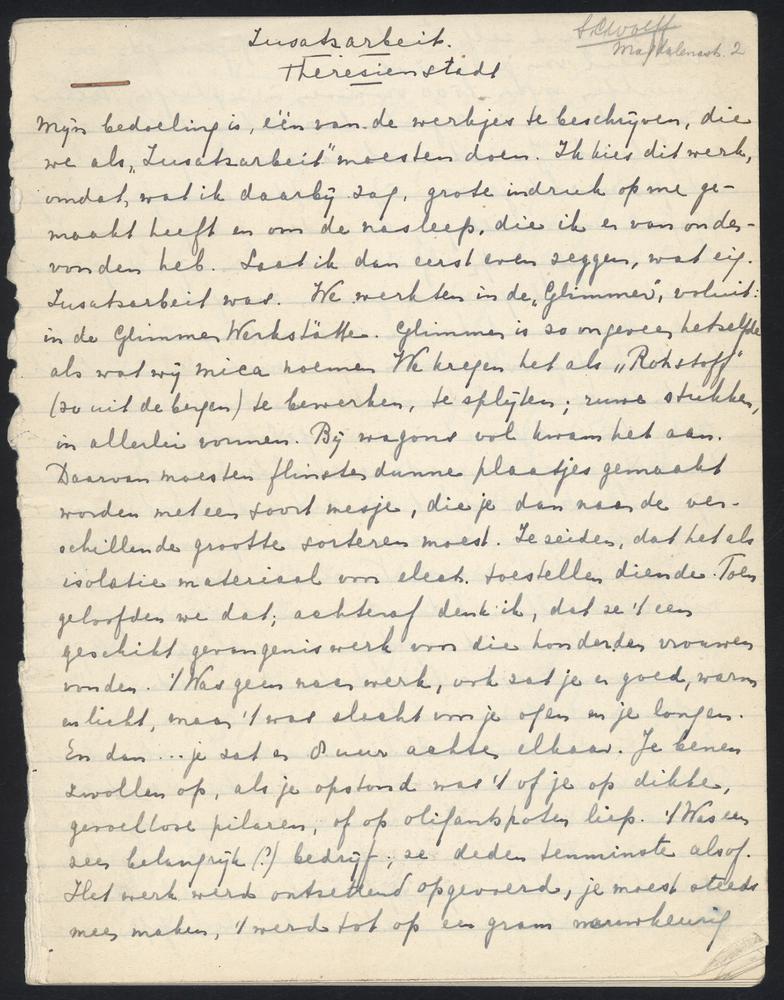 Zusatzarbeit.
Theresienstadt
S.C. Wolff
Magdalenastr. 2
Mijn bedoeling is, één van de werkjes te beschrijven, die
we als „Zusatzarbeit" moesten doen. Ik kies dit werk,
omdat, wat ik daarbij zag, grote indruk op me ge-
maakt heeft en om de nasleep, die ik er van onder-
vonden heb. Laat ik dan eerst even zeggen, wat eig.
Zusatzarbeit was. We werkten in de „Glimmer", voluit:
in de Glimmer Werkstätte. Glimmer is zo ongeveer hetzelfde
als wat wij mica noemen We kregen het als „Rohstoff"
(zo uit de bergen) te bewerken, te splijten; ruwe stukken,
in allerlei vormen. Bij wagons vol kwam het aan.
Daarvan moesten flinterdunne plaatjes gemaakt
worden met een soort mesje, die je dan naar de ver-
schillende grootte sorteren moest. Ze zeiden, dat het als
isolatie materiaal voor elect. toestellen diende. Toen
geloofden we dat; achteraf denk ik, dat ze 't een
geschikt gevangeniswerk voor die honderden vrouwen
vonden. 't Was geen naar werk, ook zat je er goed, warm
en licht, maar 't was slecht voor je ogen en je longen.
En dan ... je zat er 8 uur achter elkaar. Je benen
zwollen op, als je opstond was 't of je op dikke,
gevoelloze pilaren, of op olifantspoten liep. 't Was een
zeer belangrijk (?) bedrijf; ze deden tenminste alsof.
Het werk werd ontzettend opgevoerd, je moest steeds
meer maken, 't werd tot op een gram nauwkeurig